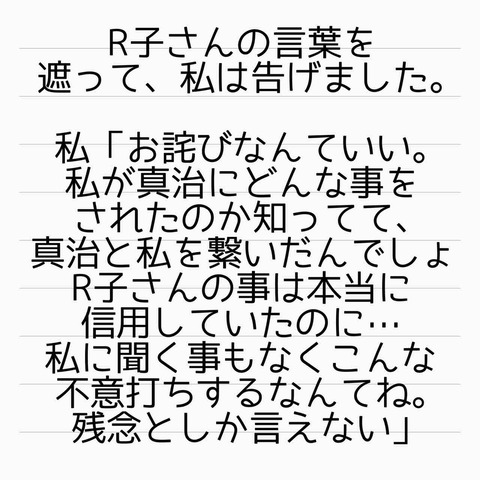 R子さんの言葉を
遮って、私は告げました。
私「お詫びなんていい。
私が真治にどんな事を
されたのか知ってて、
真治と私を繋いだんでしょ
R子さんの事は本当に
信用していたのに…
私に聞く事もなくこんな
不意打ちするなんてね。
残念としか言えない」